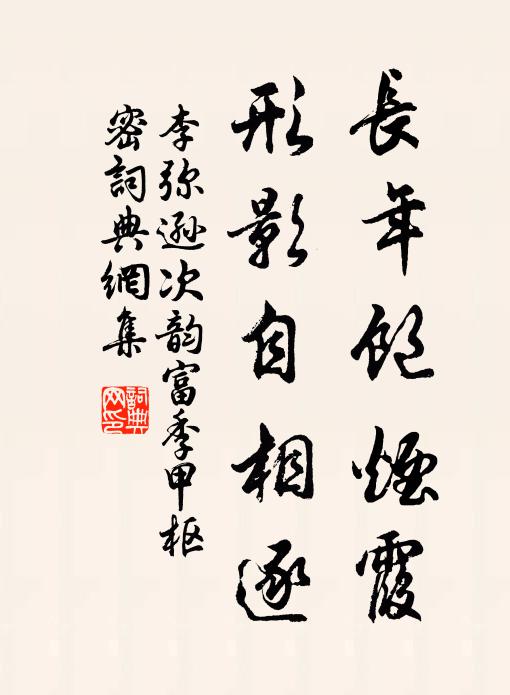 長年飽煙霞
形影自相逐
李弥遜次韵富季甲枢
密詞典網集
詞典
网印